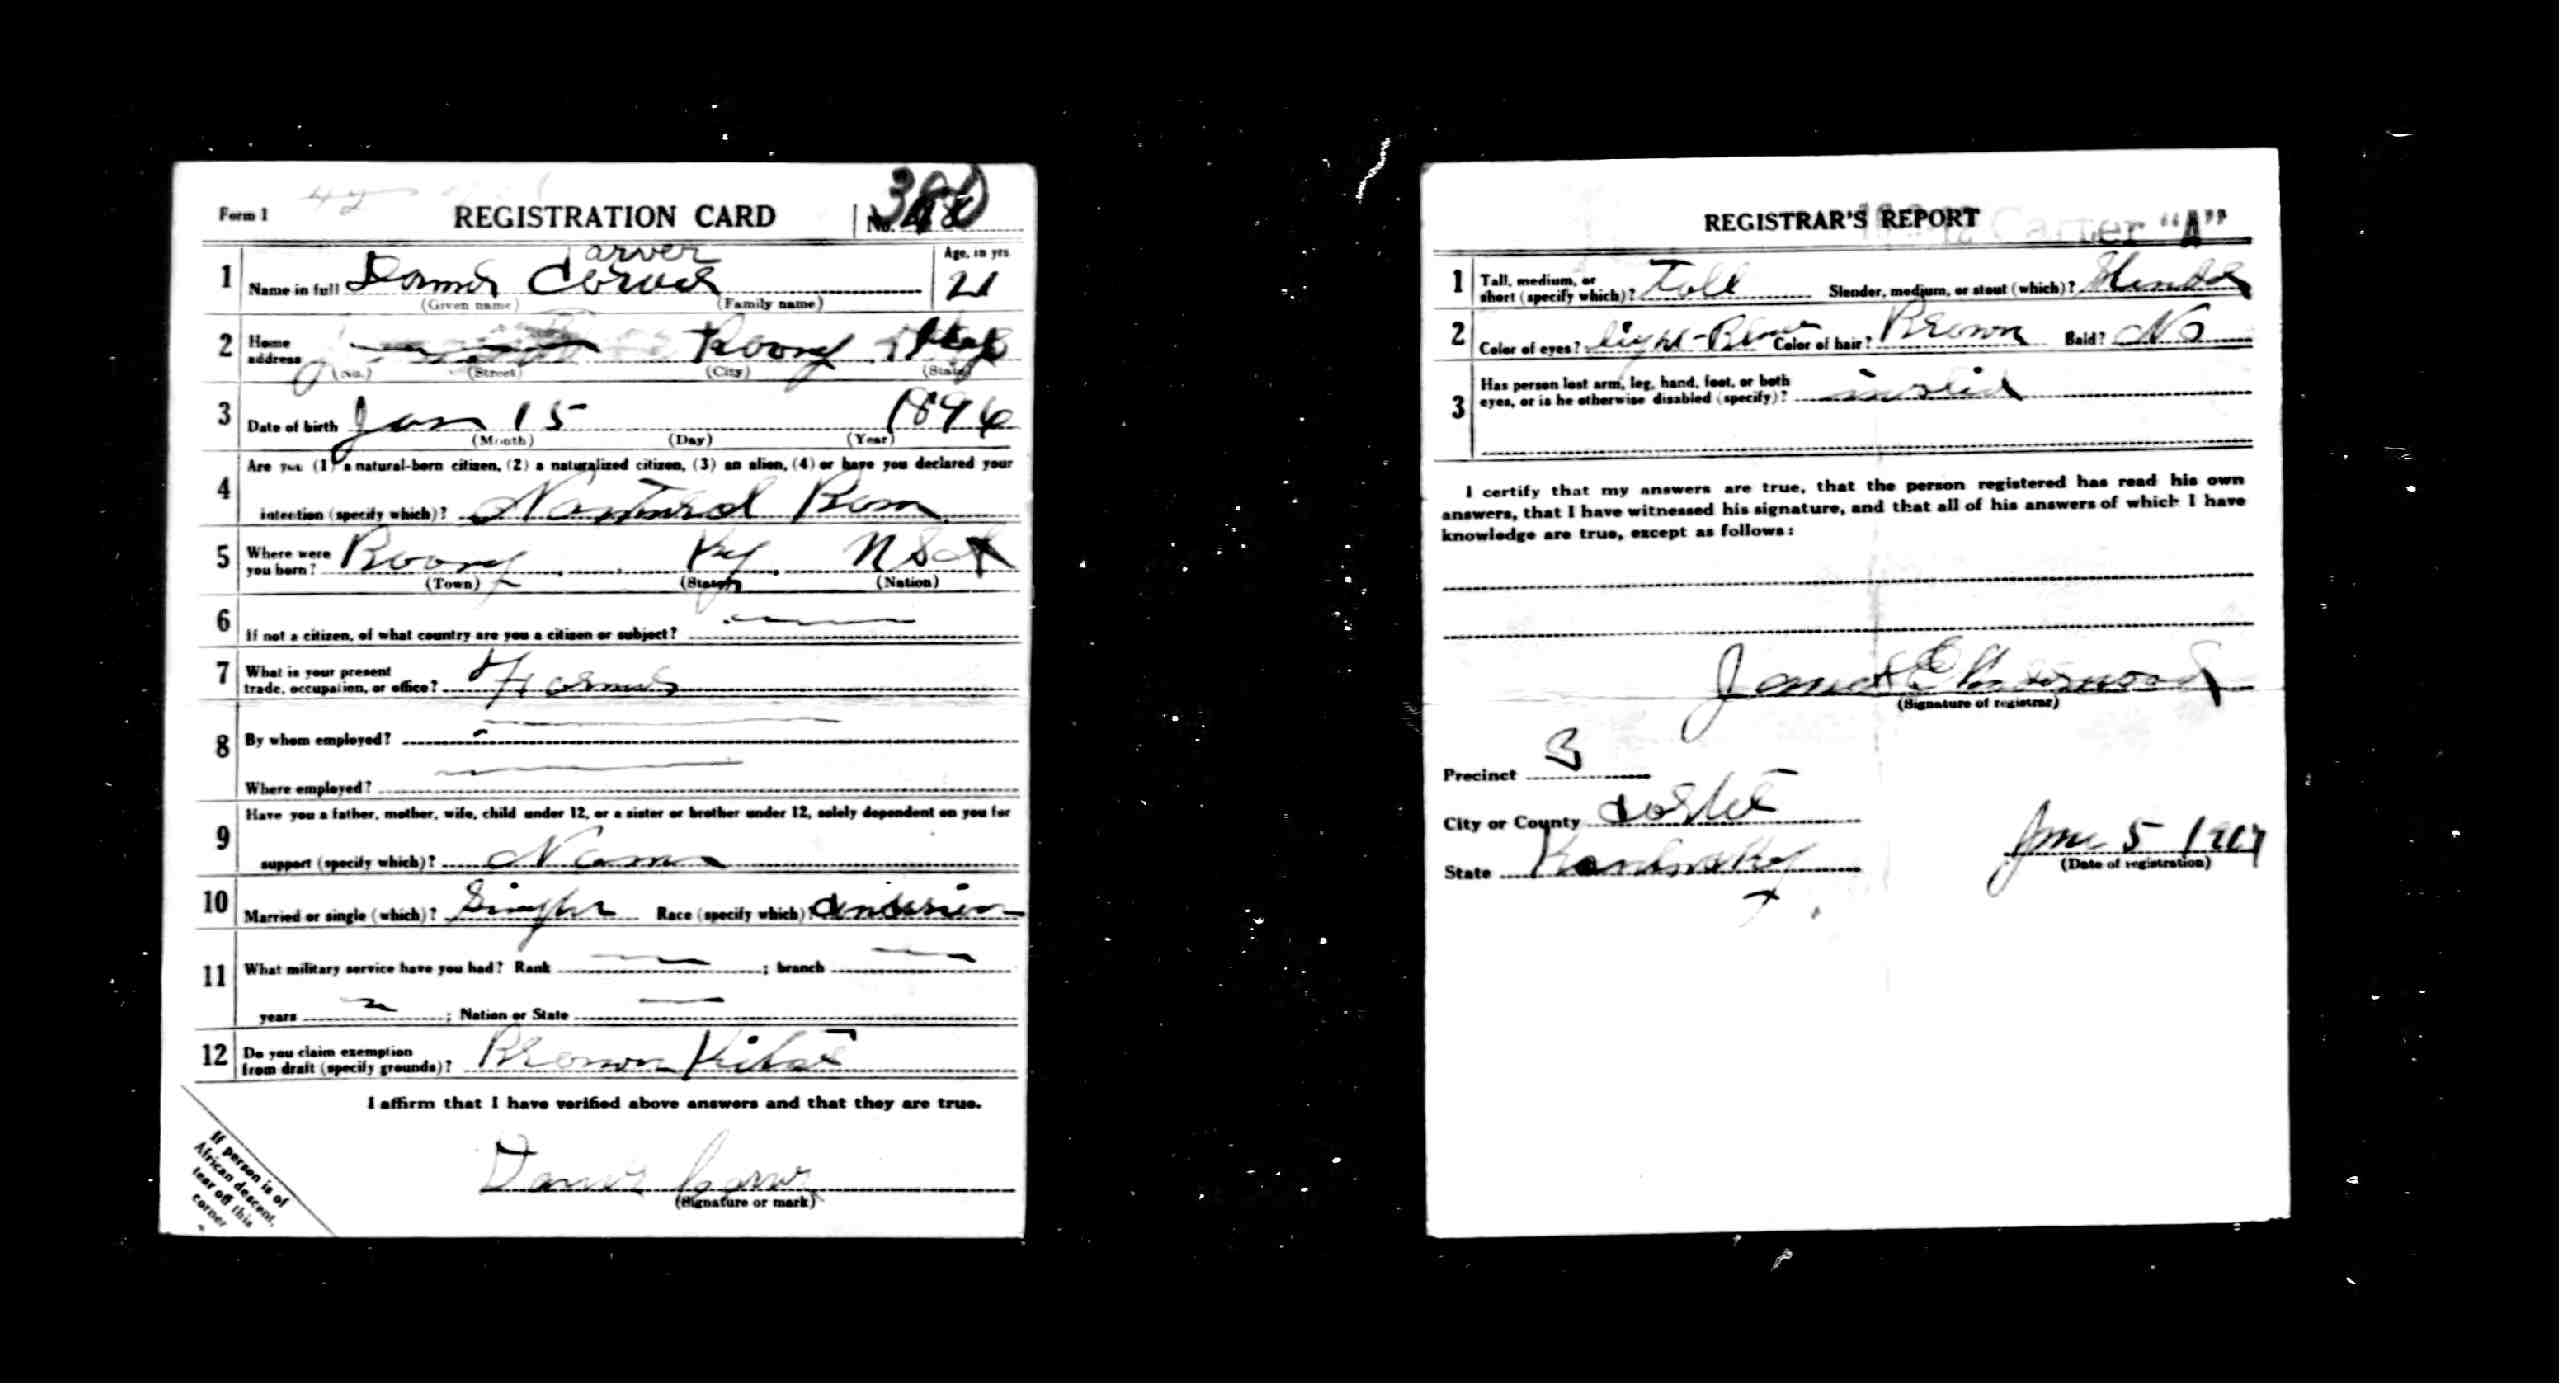 Form 1
REGISTRATION CARD
No.
1 Name in full Carver
(Given name) (Family name)
Age, in yrs 21
2 Home address Roony Ky
(No.) (Street) (City) (State)
3 Date of birth Jan 15 1896
(Month) (Day) (Year)
4 Are you (1) a natural-born citizen, (2) a naturalized citizen, (3) an alien, (4) or have you declared your
intention (specify which)? Natural Born
5 Where were you born? Roony Ky
(Town) (State) (Nation)
6 If not a citizen, of what country are you a citizen or subject?
7 What is your present
trade, occupation, or office? Farmer
8 By whom employed?
Where employed?
9 Have you a father, mother, wife, child under 12, or a sister or brother under 12, solely dependent on you for
support (specify which)?
10 Married or single (which)? Single Race (specify which)?
11 What military service have you had? Rank ; branch
years ; Nation or State
12 Do you claim exemption
from draft (specify grounds)?
I affirm that I have verified above answers and that they are true.
(Signature or mark)
If person is of
African descent,
tear off this
corner
REGISTRAR'S REPORT
Carter "A"
1 Tall, medium, or
short (specify which)? Tall Slender, medium, or stout (which)? Slender
2 Color of eyes? light-Blue Color of hair? Brown Bald? No
3 Has person lost arm, leg, hand, foot, or both
eyes, or is he otherwise disabled (specify)?
I certify that my answers are true, that the person registered has read his own
answers, that I have witnessed his signature, and that all of his answers of which I have
knowledge are true, except as follows:
(Signature of registrar)
Precinct 3
City or County Carter
State Kentucky
June 5 1917
(Date of registration)